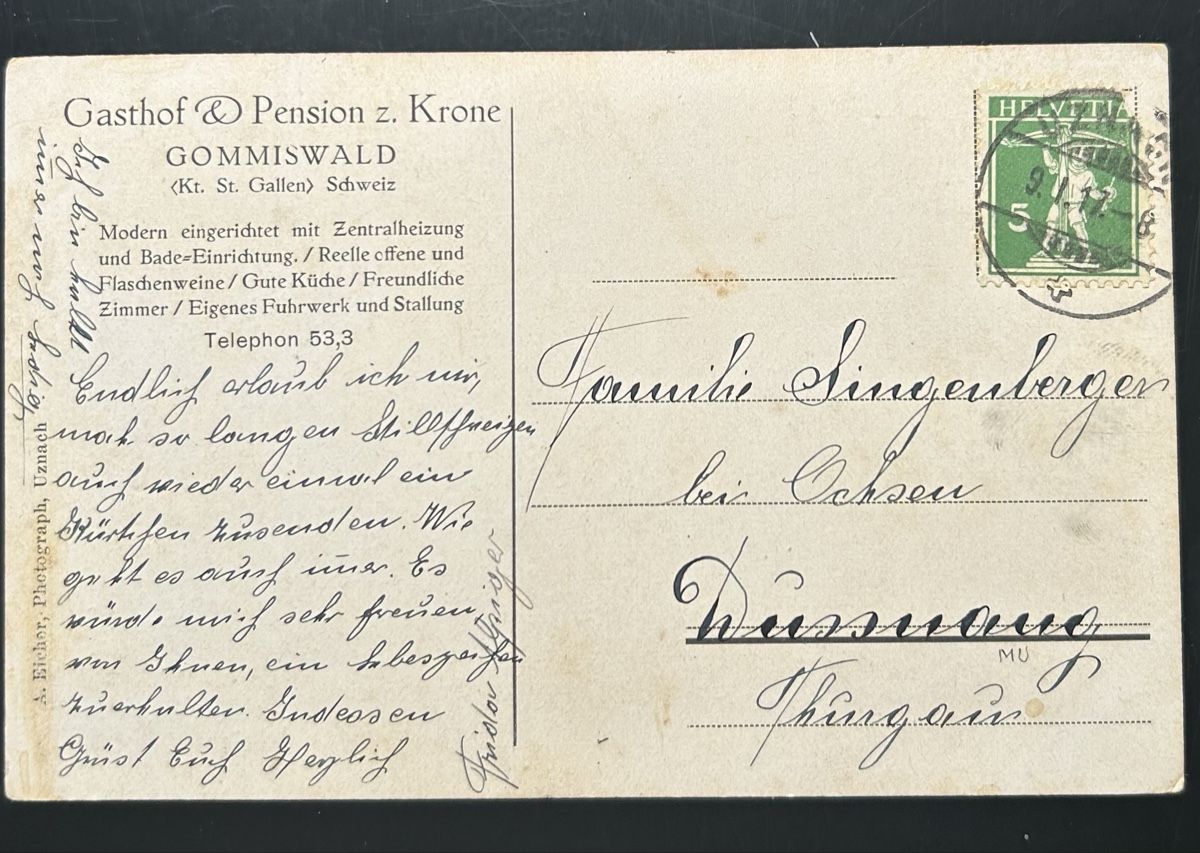 Gasthof & Pension z. Krone
GOMMISWALD
<Kt. St. Gallen> Schweiz
Modern eingerichtet mit Zentralheizung
und Bade=Einrichtung. / Reelle offene und
Flaschenweine / Gute Küche / Freundliche
Zimmer / Eigenes Fuhrwerk und Stallung
Telephon 53,3
Endlich erlaub ich mir,
nach so langen Stillschweigen
auch wieder einmal ein
Kärtchen zusenden. Wie
geht es auch immer. Es
würde mich sehr freuen
von Ihnen, ein
zuerhalten. Indessen
Grüst Euch Herzlich
Ich bin halt
immer noch ledig
A. Eicher, Photograph, Uznach
HELVETIA
5
UZNACH
9.I.17.-8
Familie Singenberger
bei Ochsen
Dussnang
MU
Thurgau